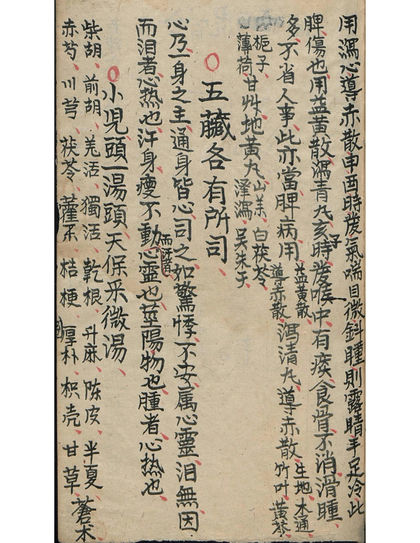 用瀉心導赤散申酉時發氣喘目微斜睡則露睛手足冷此
脾傷也用益黃散瀉青丸亥時發喉中有痰食骨不消滑睡
多不省人事此亦當脾病用益黃散導赤散瀉清丸導赤散生地木通竹叶黃芩
梔子薄荷甘艸地黃丸山澤瀉白茯苓吳朱于
五臟各有所司
心乃一身之主通身皆心司之如驚悸不安属心靈泪無因
而泪者心熱也汗身瘦不動心靈也莖陽物也腫者心热也
小児頭一湯頭天保采微湯
柴胡前胡羌活獨活乾根升麻陳皮半夏蒼术
赤芍川芎茯苓藿桔梗厚朴枳壳甘草